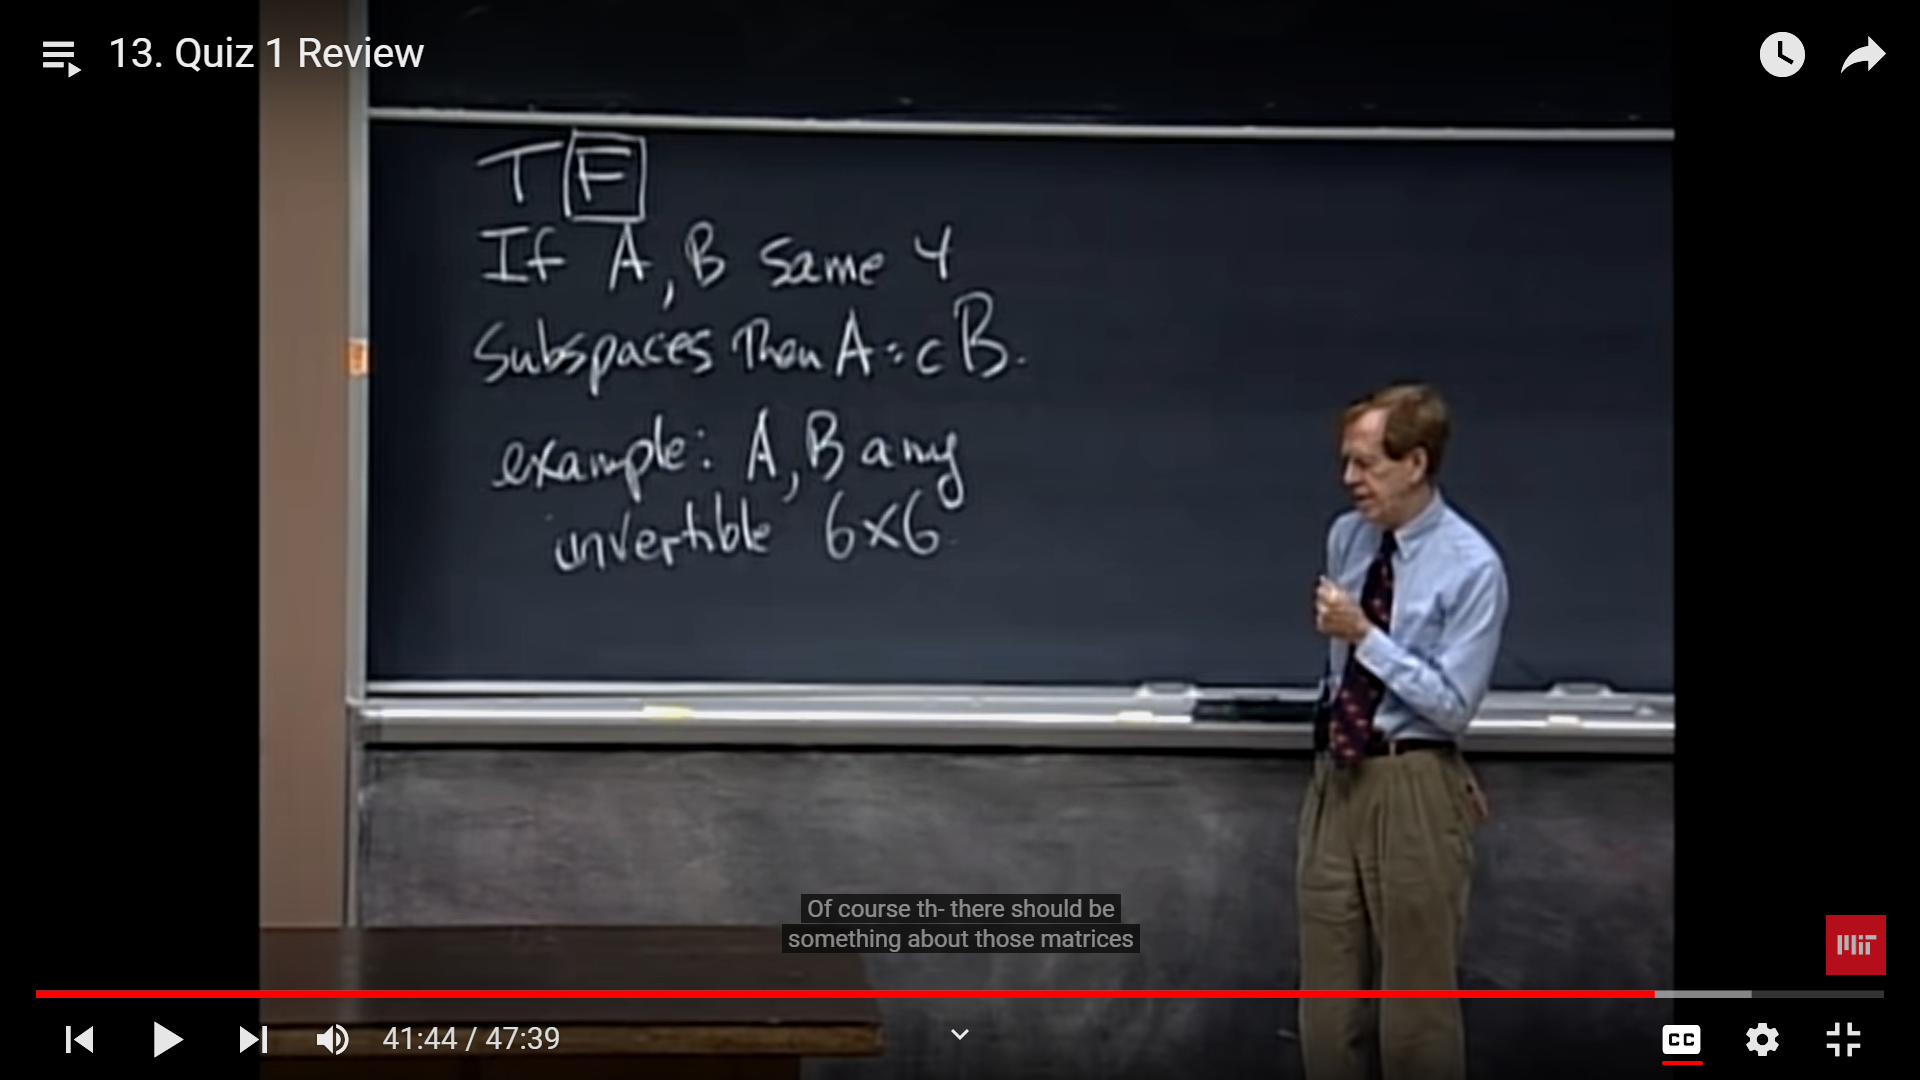 13. Quiz 1 Review
T F
If A, B same 4
subspaces then A = cB.
example: A, B any
invertible 6x6
Of course th- there should be
something about those matrices
MIT
41:44 / 47:39
CC